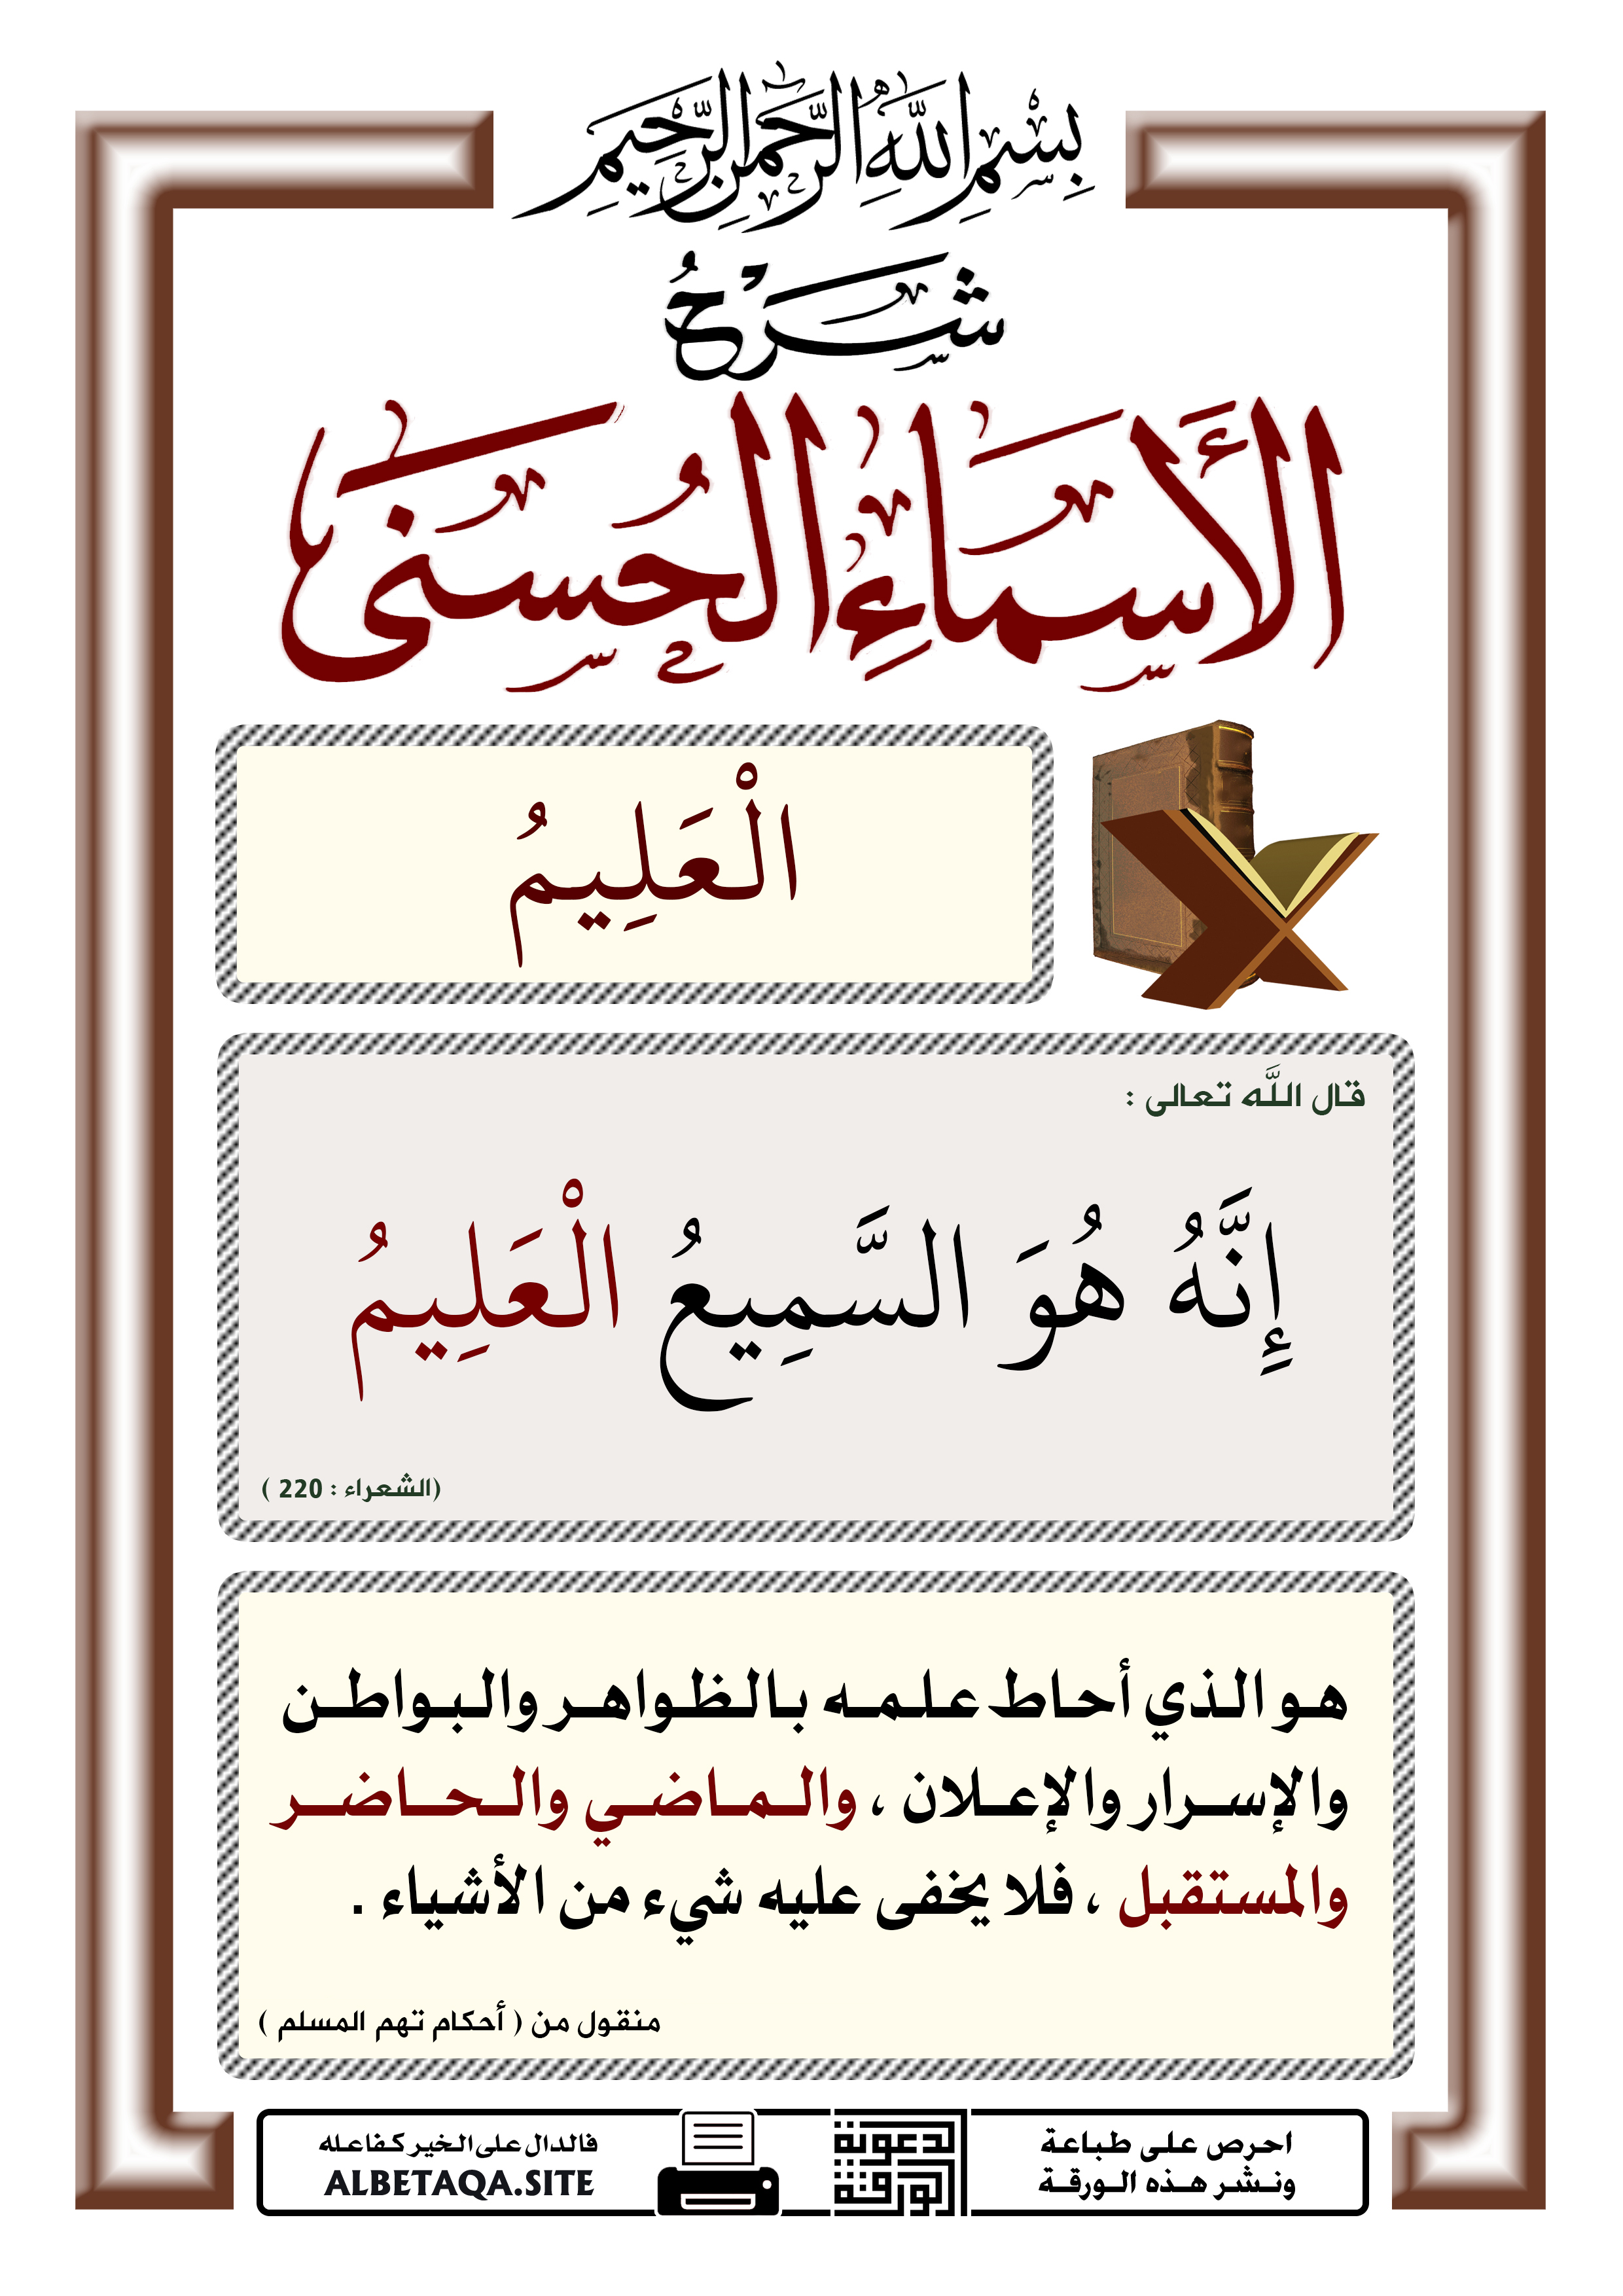 بِسْمِ اللَّهِ الرَّحْمَنِ الرَّحِيمِ
شَرْحُ
الأَسْمَاءِ الْحُسْنَى
الْعَلِيمُ
قال اللَّه تعالى :
إِنَّهُ هُوَ السَّمِيعُ الْعَلِيمُ
(الشعراء : 220 )
هو الذي أحاط علمه بالظواهر والبواطن
والإسرار والإعلان ، والماضي والحاضر
والمستقبل ، فلا يخفى عليه شيء من الأشياء .
منقول من ( أحكام تهم المسلم )
احرص على طباعة
ونشر هذه الورقة
الورقة
الدعوية
فالدال على الخير كفاعله
ALBETAQA.SITE